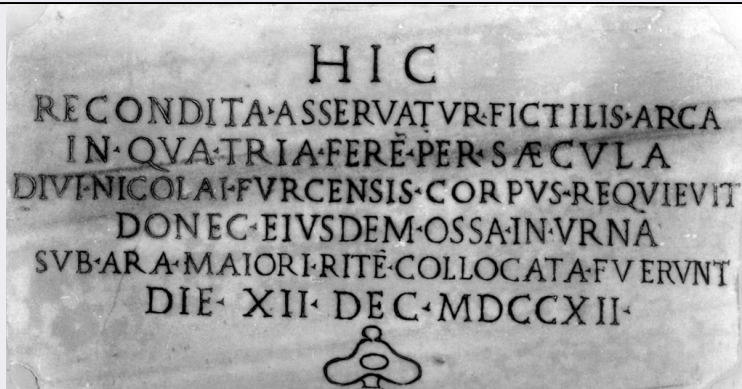 HIC
RECONDITA·ASSERVATVR·FICTILIS·ARCA
IN·QVA·TRIA·FERÈ·PER·SÆCVLA
DIVI·NICOLAI·FVRCENSIS·CORPVS·REQVIEVIT
DONEC·EIVSDEM·OSSA·IN·VRNA
SVB·ARA·MAIORI·RITÈ·COLLOCATA·FVERVNT
DIE· XII· DEC·MDCCXII·